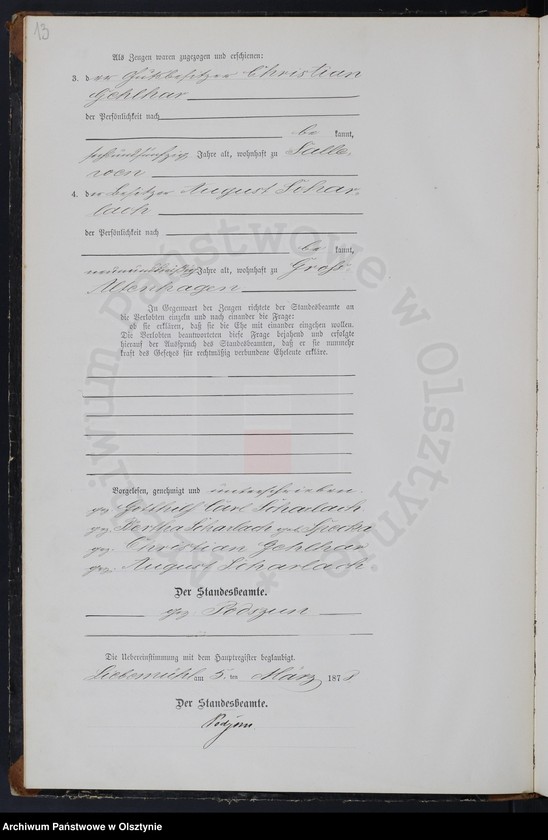 13
Als Zeugen waren zugezogen und erschienen:
3. der Gutsbesitzer Christian
Gehlhar
der Persönlichkeit nach
be kannt,
Jahre alt, wohnhaft zu Salle-
wen
4. der Besitzer August Schar-
lach
der Persönlichkeit nach
be kannt,
neununddreißig Jahre alt, wohnhaft zu Groß
Altenhagen
In Gegenwart der Zeugen richtete der Standesbeamte an
die Verlobten einzeln und nach einander die Frage:
ob sie erklären, daß sie die Ehe mit einander eingehen wollen.
Die Verlobten beantworteten diese Frage bejahend und erfolgte
hierauf der Ausspruch des Standesbeamten, daß er sie nunmehr
kraft des Gesetzes für rechtmäßig verbundene Eheleute erkläre.
Vorgelesen, genehmigt und unterschrieben.
gez. Gotthelf Carl Scharlach
gez. Bertha Scharlach geb.
gez. Christian Gehlhar
gez. August Scharlach
Der Standesbeamte.
gez. Podszun
Die Uebereinstimmung mit dem Hauptregister beglaubigt.
Liebemühl am 5. ten März 1878
Der Standesbeamte.
Archiwum Państwowe w Olsztynie
Archiwum Państwowe w Olsztynie